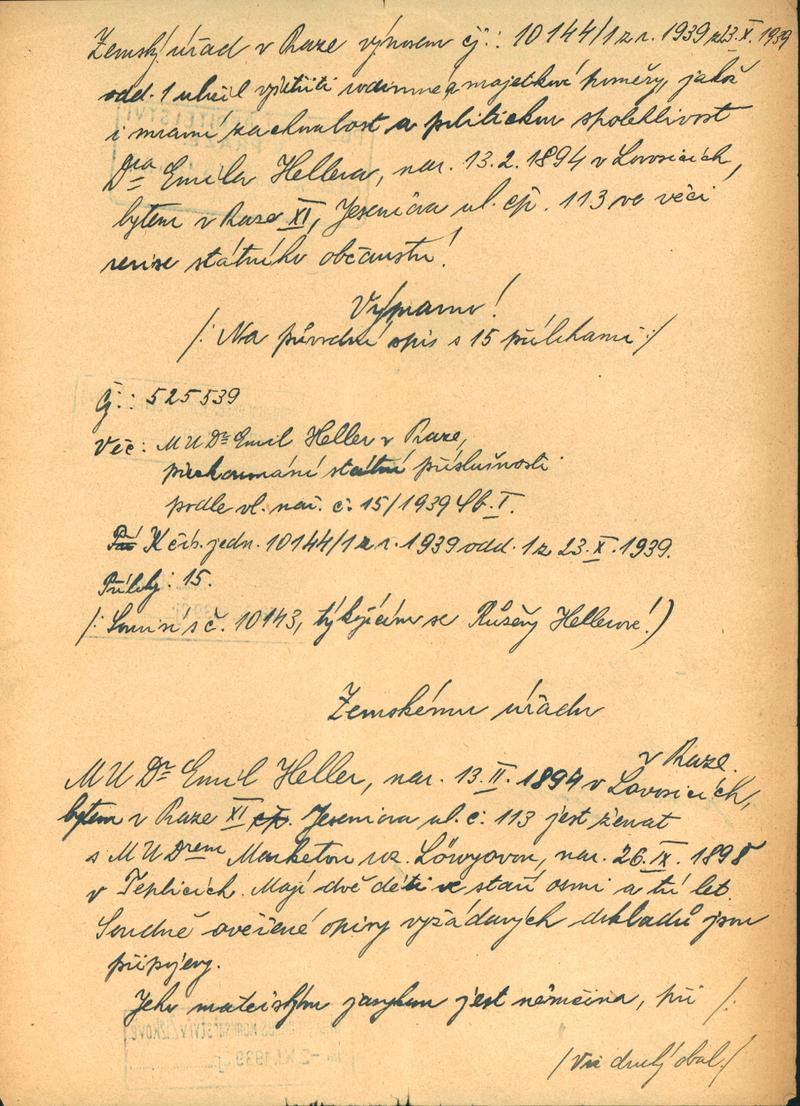 Zemský úřad v Praze výnosem čj.: 10144/1 z r. 1939 z 23.X.1939
odd. 1 uložil vyšetřiti rodinné a majetkové poměry, jakož
i mravní zachovalost a politickou spolehlivost
Dra Emila Hellera, nar. 13.2.1894 v Lovosicích,
bytem v Praze XI, Jeseniova ul. čp. 113 ve věci
revise státního občanství!
Význam!
/: Na původní spis s 15 přílohami :/
Čj.: 525539
Věc: MUDr Emil Heller v Praze,
přezkoumání státní příslušnosti
podle vl. nař. č. 15/1939 Sb. I.
K čís. jedn. 10144/1 z r. 1939 odd. 1 z 23.X.1939.
Přílohy: 15.
/: Souvisí s č. 10143, týkajícím se Růženy Hellerové!)
Zemskému úřadu
v Praze.
MUDr Emil Heller, nar. 13.II.1894 v Lovosicích,
bytem v Praze XI čp. Jeseniova ul. č. 113 jest ženat
s MUDrem Marketou roz. Löwyovou, nar. 26.IX.1898
v Teplicích. Mají dvě děti ve stáří osmi a tří let.
Soudně ověřené opisy vyžádaných dokladů jsou
připojeny.
Jeho mateřským jazykem jest němčina, při /:
/Viz druhý obal:/